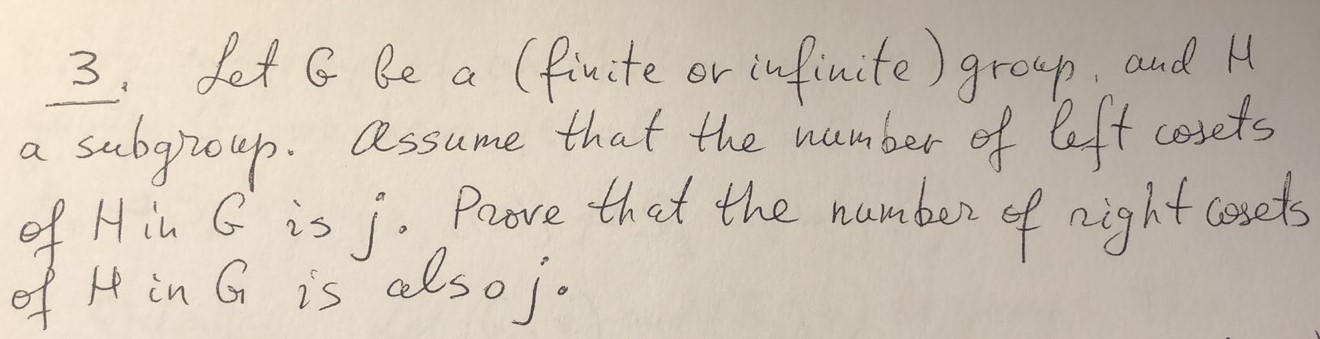 3. Let G be a (finite or infinite) group, and H
a subgroup. Assume that the number of left cosets
of H in G is j. Prove that the number of right cosets
of H in G is also j.